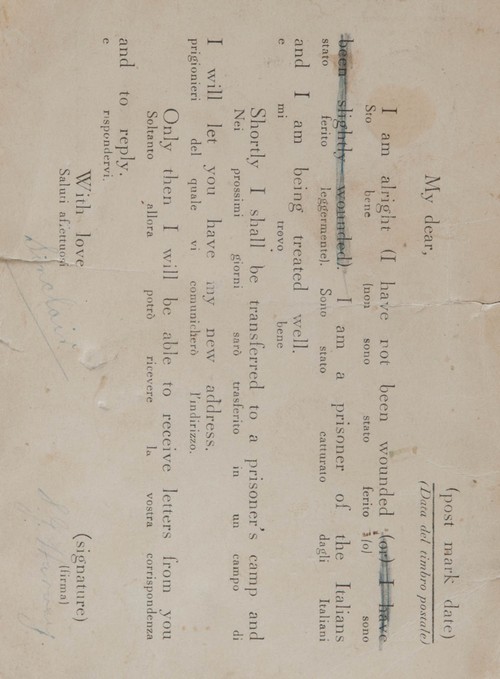 (post mark date)
(Data del timbro postale)
My dear,
I am alright (I have not been wounded (or) I have
Sto bene (non sono stato ferito (o) sono
been slightly wounded). I am a prisoner of the Italians
stato ferito leggermente). Sono stato catturato dagli Italiani
and I am being treated well.
e mi trovo bene
Shortly I shall be transferred to a prisoner's camp and
Nei prossimi giorni sarò trasferito in un campo di
I will let you have my new address.
prigionieri del quale vi comunicherò l'indirizzo.
Only then I will be able to receive letters from you
Soltanto allora potrò ricevere la vostra corrispondenza
and to reply.
e rispondervi.
With love (signature)
Saluti affettuosi (firma)